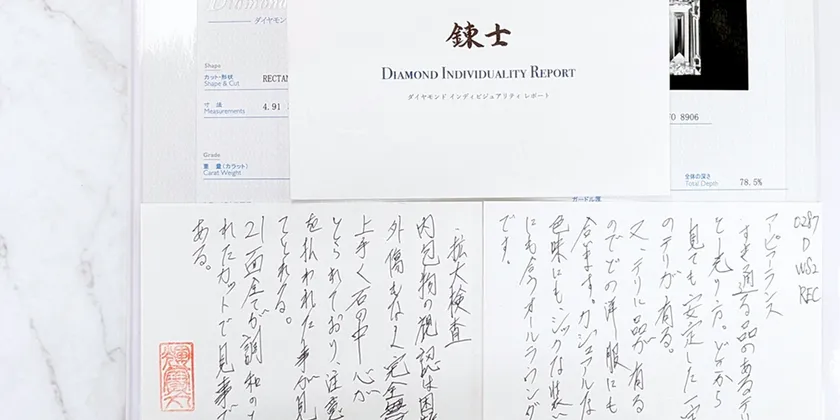 Diamond
ダイヤモン
Shape
カット・形状
Shape & Cut
RECTAN
寸 法
Measurements
4.91
Grade
重 量 (カラット)
Carat Weight
錬士
DIAMOND INDIVIDUALITY REPORT
ダイヤモンド インディビジュアリティ レポート
8906
全体の深さ
Total Depth
78.5%
ガードル厚
0287
D
VVS2
REC
アピアランス
すき通る品のあるテ
見ても安定した一定
のテリが有る。
又、テリに品が有る
のでどの洋服にも
合います。カジュアルな
色味にもシックな装
にも合うオールラウンダ
です。
拡大検査
内包物の視認は困
外傷もなく完全無
上手く石の中心が
とられており、注意
を払われた事が見
てとれる。
21面全てが調和の
れたカットで見事が
ある。